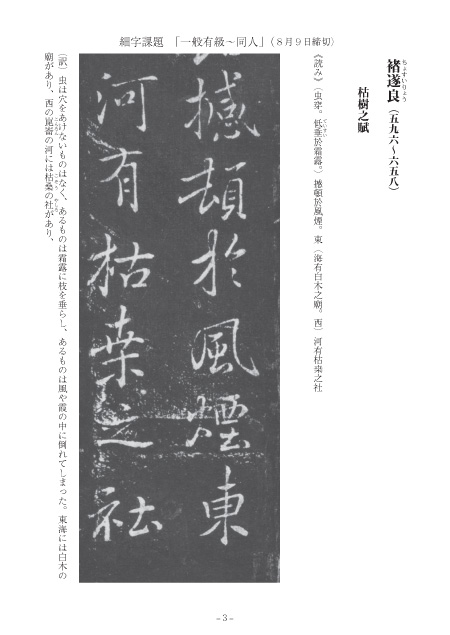 細字課題 「一般有級～同人」（８月９日締切）
褚遂良（五九六～六五八）
ちょすいりょう
枯樹之賦
《読み》（虫穿。低垂於霜露。）撼頓於風煙。東（海有白木之廟。西）河有枯桒之社
ていすい
撼頓於風煙東
河有枯桒之社
（訳）虫は穴をあけないものはなく、あるものは霜露に枝を垂らし、あるものは風や霞の中に倒れてしまった。東海には白木の
廟があり、西の崑崙の河には枯桑の社があり、
こんろん
こそう
やしろ
－3－